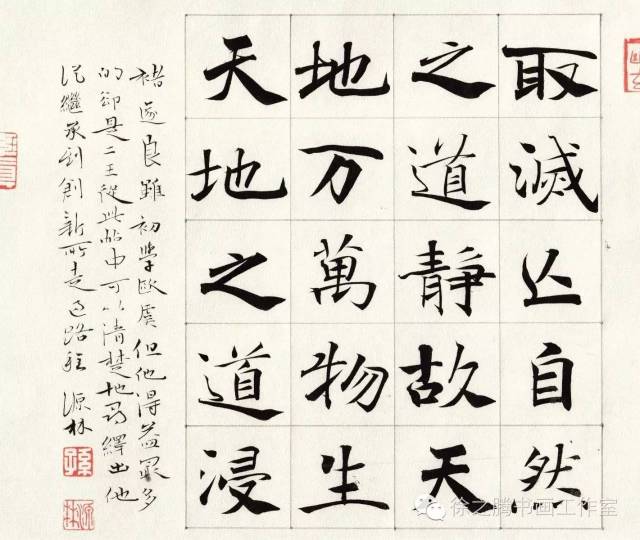 取滅亾自然
之道靜故天
地万萬物生
天地之道浸
褚遂良雖初學歐虞但他得益最多
的卻是二王從此帖中可以清楚地尋繹出他
從繼承到創新所走過路程 源林
孫
源林
徐之腾书画工作室